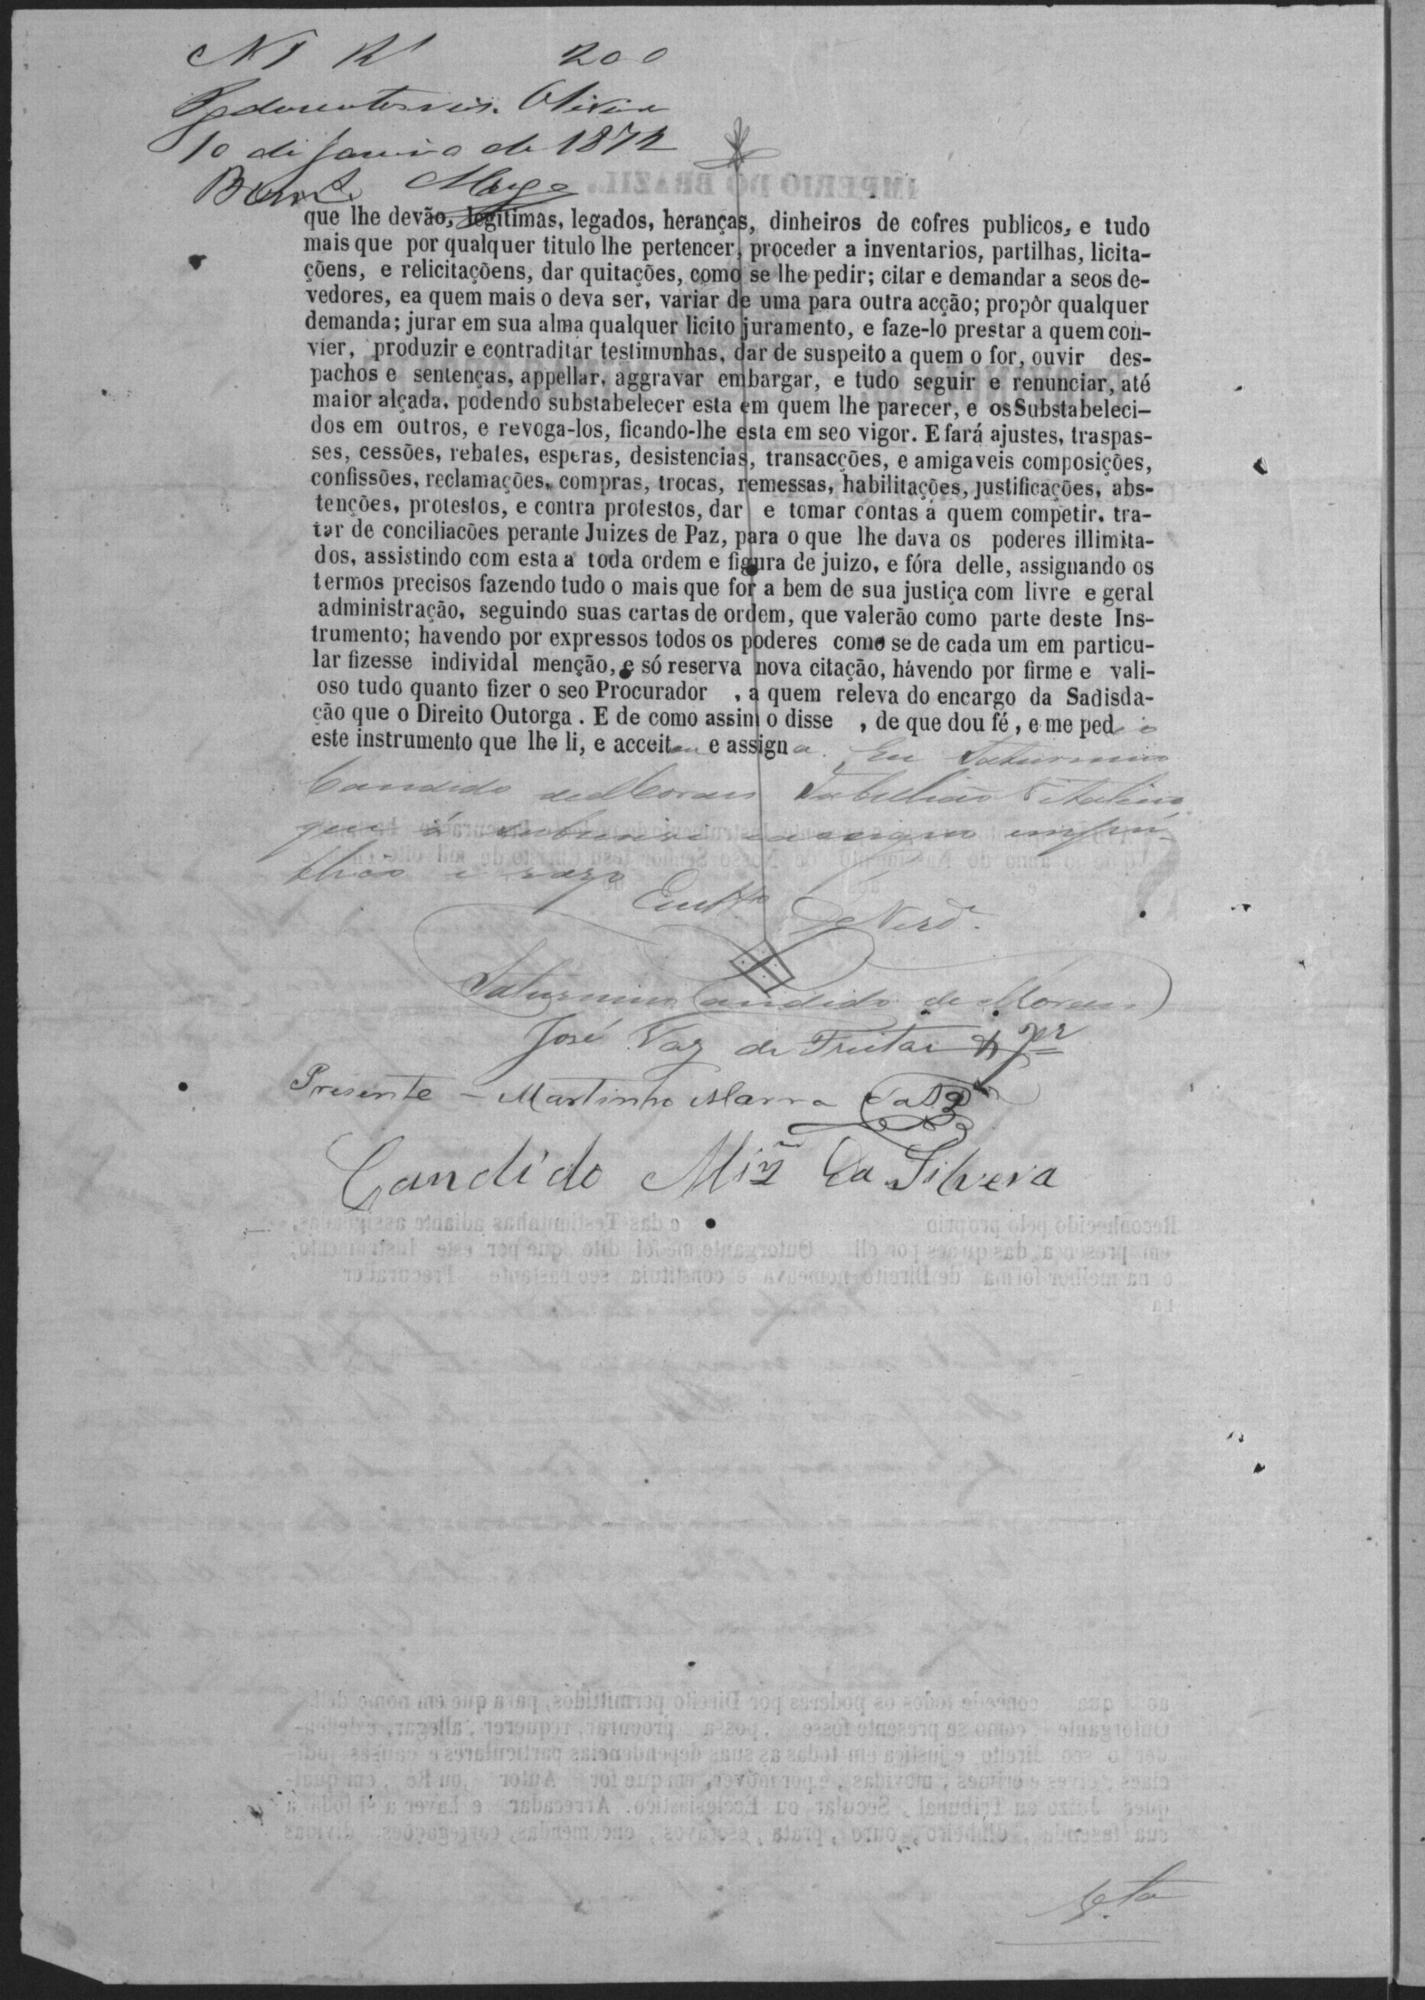 Nº 1 Rs 200
Oliveira
10 de Janeiro de 1872
que lhe devão, legitimas, legados, heranças, dinheiros de cofres publicos, e tudo
mais que por qualquer titulo lhe pertencer, proceder a inventarios, partilhas, licita-
çõens, e relicitaçõens, dar quitações, como se lhe pedir; citar e demandar a seos de-
vedores, ea quem mais o deva ser, variar de uma para outra acção; propôr qualquer
demanda; jurar em sua alma qualquer licito juramento, e faze-lo prestar a quem con-
vier, produzir e contraditar testimunhas, dar de suspeito a quem o for, ouvir des-
pachos e sentenças, appellar, aggravar embargar, e tudo seguir e renunciar, até
maior alçada, podendo substabelecer esta em quem lhe parecer, e os Substabeleci-
dos em outros, e revoga-los, ficando-lhe esta em seo vigor. E fará ajustes, traspas-
ses, cessões, rebates, esperas, desistencias, transacções, e amigaveis composições,
confissões, reclamações, compras, trocas, remessas, habilitações, justificações, abs-
tenções, protestos, e contra protestos, dar e tomar contas a quem competir, tra-
tar de conciliacões perante Juizes de Paz, para o que lhe dava os poderes illimita-
dos, assistindo com esta a toda ordem e figura de juizo, e fóra delle, assignando os
termos precisos fazendo tudo o mais que for a bem de sua justiça com livre e geral
administração, seguindo suas cartas de ordem, que valerão como parte deste Ins-
trumento; havendo por expressos todos os poderes como se de cada um em particu-
lar fizesse individal menção, e só reserva nova citação, hávendo por firme e vali-
oso tudo quanto fizer o seo Procurador , a quem releva do encargo da Sadisda-
ção que o Direito Outorga. E de como assim o disse , de que dou fé, e me pedio
este instrumento que lhe li, e acceitou e assigna. Eu Saturnino
Candido de Moraes Tabellião Vitalicio
que o subscrevi e assigno em pu-
blico e razo
Em tto de Verd.
Saturnino Candido de Moraes
José Vaz de Freitas Jor
Presente - Martinho Marra da Sa
Candido Miz da Silveira